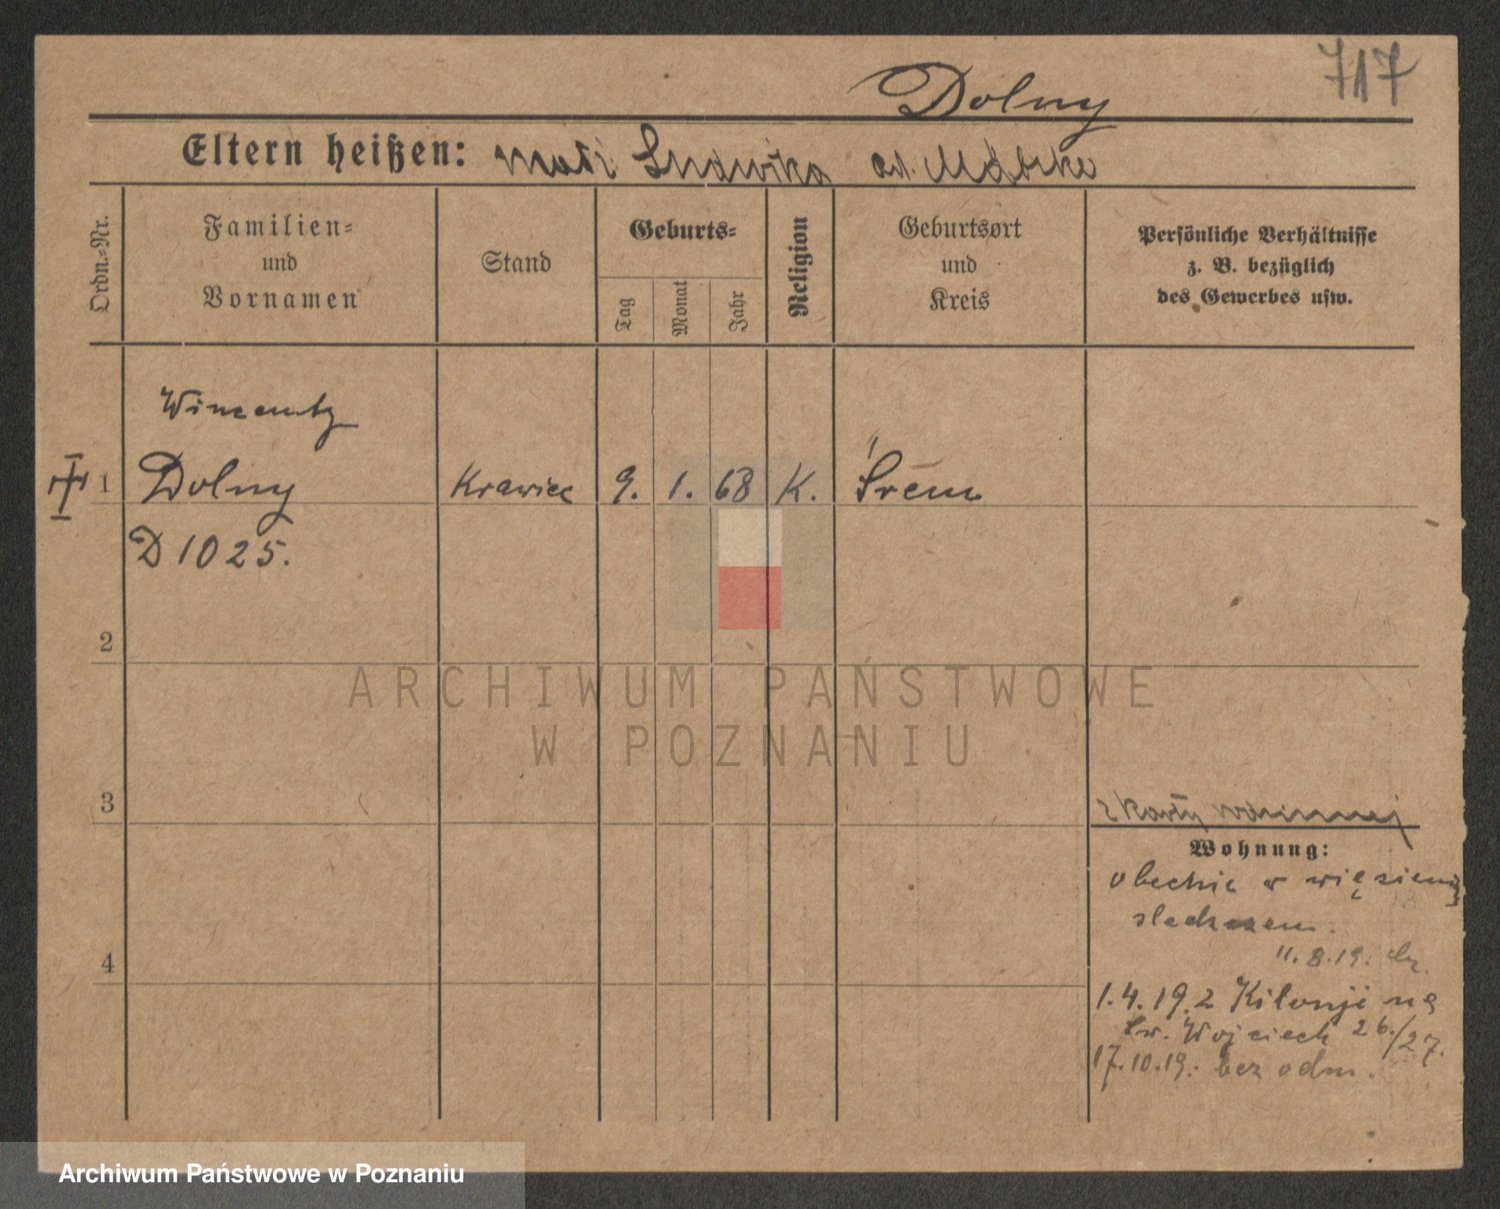 717
Dolny
Eltern heißen: Ludwika
Ordn.-Nr.
Familien-
und
Vornamen
Stand
Geburts-
Tag
Monat
Jahr
Religion
Geburtsort
und
Kreis
Persönliche Verhältnisse
z. B. bezüglich
des Gewerbes usw.
Wincenty
1 Dolny Krawiec 9. 1. 68 K. Śrem
D 1025.
2
ARCHIWUM PAŃSTWOWE
W POZNANIU
3
z karty
Wohnung:
obecnie w
11.8.19.
1.4.19. z na
św. Wojciech 26./27.
17.10.19. bez odm.
4
Archiwum Państwowe w Poznaniu